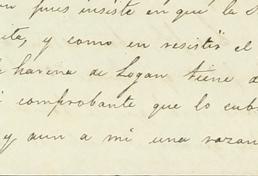 pues insiste en que la
y como en resistir el
harina de Logan tiene
comprobante que lo cub
y aun a mi una razon